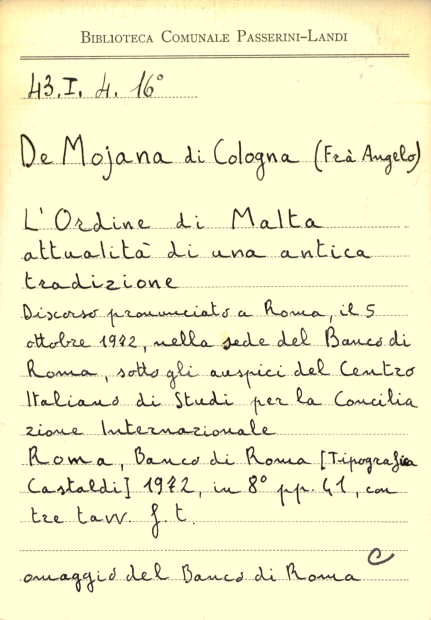 BIBLIOTECA COMUNALE PASSERINI-LANDI
43.I. 4. 16°
De Mojana di Cologna (Frà Angelo)
L'Ordine di Malta
attualità di una antica
tradizione
Discorso pronunciato a Roma, il 5
ottobre 1972, nella sede del Banco di
Roma, sotto gli auspici del Centro
Italiano di Studi per la Concilia
zione Internazionale
Roma, Banco di Roma [Tipografia
Castaldi] 1972, in 8° pp. 41, con
tre tavv. f. t.
C
omaggio del Banco di Roma